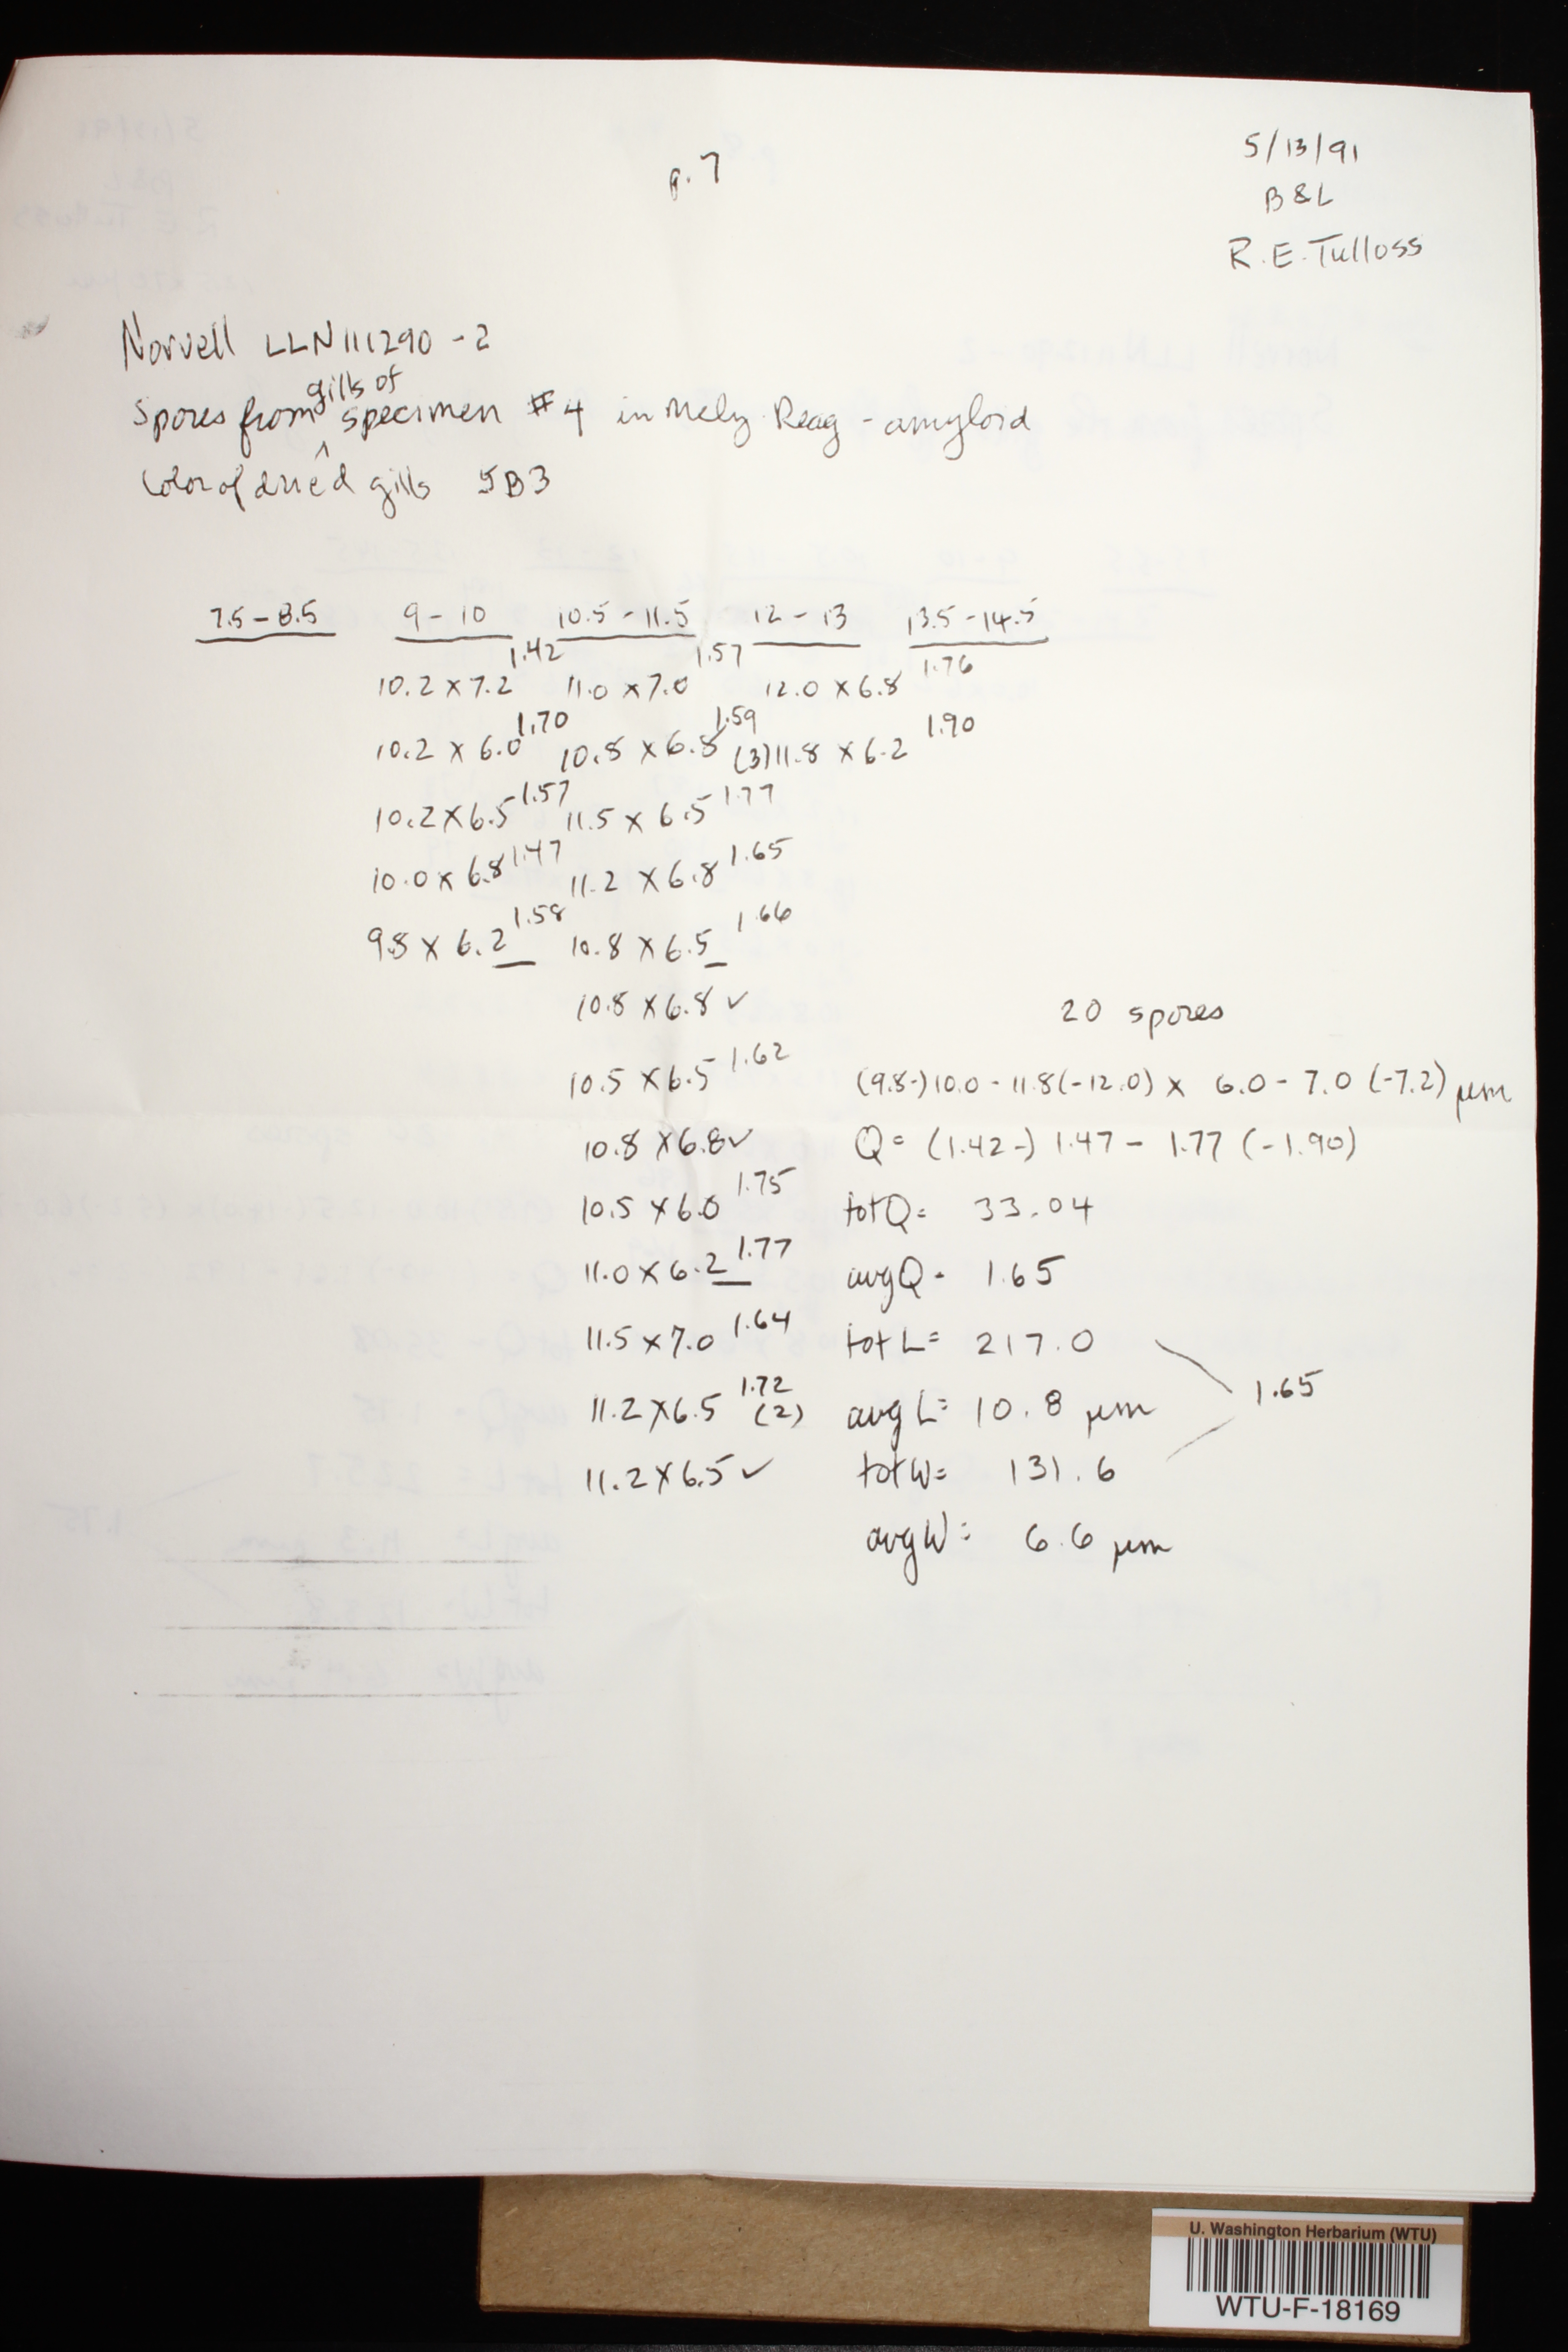 p. 7
5/13/91
B & L
R. E. Tulloss
Norvell LLN111290-2
gills of
Spores from ^ specimen #4 in Melz. Reag - amyloid
Color of dried gills 5B3
7.5-8.5 9-10 10.5-11.5 12-13 13.5-14.5
10.2 x 7.2 1.42 11.0 x 7.0 1.57 12.0 x 6.8 1.76
10.2 x 6.0 1.70 10.8 x 6.8 1.59 (3) 11.8 x 6.2 1.90
10.2 x 6.5 1.57 11.5 x 6.5 1.77
10.0 x 6.8 1.47 11.2 x 6.8 1.65
9.8 x 6.2 1.58 10.8 x 6.5 1.66
10.8 x 6.8 ✓
20 spores
10.5 x 6.5 1.62
(9.8-)10.0-11.8(-12.0) x 6.0-7.0 (-7.2) µm
10.8 x 6.8 ✓
Q= (1.42-) 1.47 - 1.77 (-1.90)
10.5 x 6.0 1.75
totQ= 33.04
11.0 x 6.2 1.77
avgQ= 1.65
11.5 x 7.0 1.64
totL= 217.0
1.65
11.2 x 6.5 1.72 (2)
avgL= 10.8 µm
11.2 x 6.5 ✓
totW= 131.6
avgW= 6.6 µm
U. Washington Herbarium (WTU)
WTU-F-18169